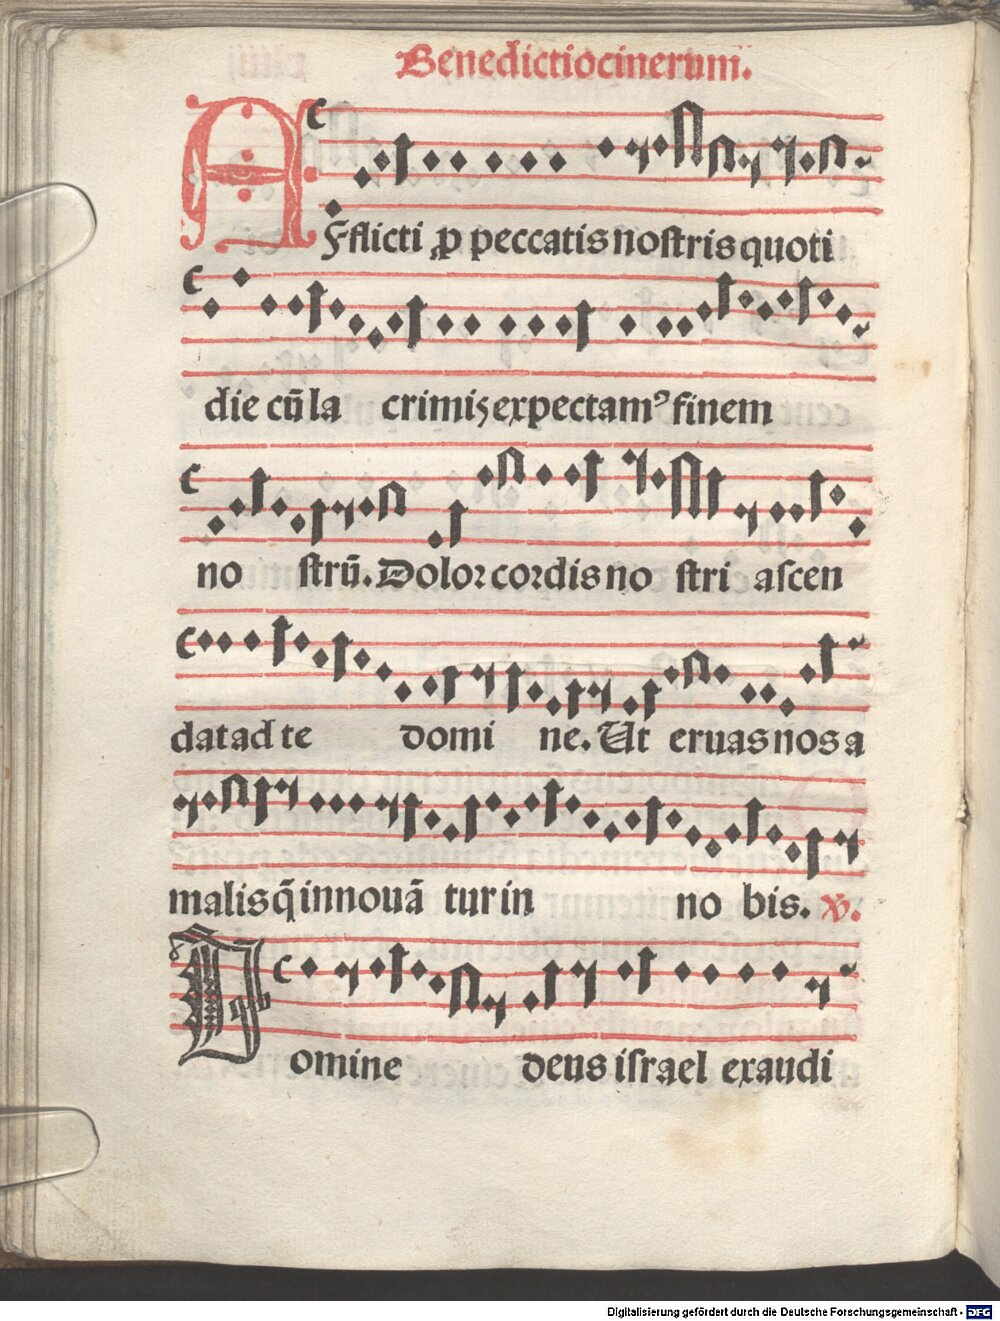 Benedictio cinerum.
AFflicti ꝓ peccatis noſtris quoti
die cū la crimiꝫ expectamꝰ finem
no ſtrū. Dolor cordis no ſtri aſcen
dat ad te domi ne. Ut eruas nos a
malis q̄ innouā tur in no bis. ℣.
Domine deus iſrael exaudi
Digitalisierung gefördert durch die Deutsche Forschungsgemeinschaft - DFG